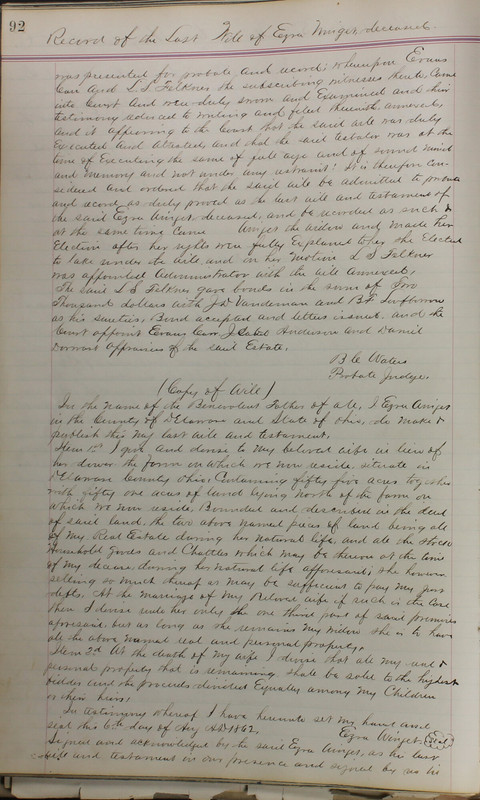 92
Record of the Last Will of Ezra Winget deceased.
was presented for probate and record. Whereupon Evans
Carr and L S Felkner the subscribing witnesses thereto, came
into Court and were duly sworn and Examined and their
testimony reduced to writing and filed herewith annexed,
and it appearing to the Court that the said will was duly
Executed and attested, and that the said testator was at the
time of Executing the same of full age and of sound mind
and memory and not under any restraint: It is therefore Con-
sidered and ordered that the said will be admitted to probate
and record as duly proved as the last will and testament of
the said Ezra Winget deceased, and be recorded as such &
at the same time Came Winget the widow and made her
Election after her rights were fully Explained to her She Elected
to take under the Will, and on her motion L S Felkner
was appointed Administrator with the will annexed.
The said L S Felkner gave bonds in the sum of Two
Thousand dollars with Vandeman and B F
as his sureties, Bond accepted and letters issued. and the
Court appoint Evans Carr, Anderson and Daniel
Dorman appraisers of the said Estate.
B C Waters
Probate Judge
(Copy of Will)
In the Name of the Benevolent Father of all, I Ezra Winget
in the County of Delaware and State of Ohio, do make &
publish this my last will and testament.
Item 1st I give and devise to my beloved wife in lieu of
her dower the farm on which we now reside, situate in
Delaware County Ohio, Containing fifty five acres together
with fifty one acres of land lying North of the farm on
which we now reside, Bounded and described in the deed
of said land. the two above named pieces of land being all
of my Real Estate during her natural life and all the stock
Household Goods and Chattles which may be thereon at the time
of my decease, during her natural life afforesaid; she however
selling so much thereof as may be sufficient to pay my just
debts. At the marriage of my Beloved wife if such is the Case
then I devise unto her only the one third part of said premises
aforesaid. but as long as she remains my widow she is to have
all the above named real and personal property.
Item 2d At the death of my wife I devise that all my real &
personal property that is remaining shall be sold to the highest
bidder and the proceeds divided Equally among my Children
or their heirs.
In testimony whereof I have hereunto set my hand and
seal this 6th day of Aug AD 1867. Ezra Winget (Seal)
Signed and acknowledged by the said Ezra Winget, as his last
Will and testament in our presence and signed by us in